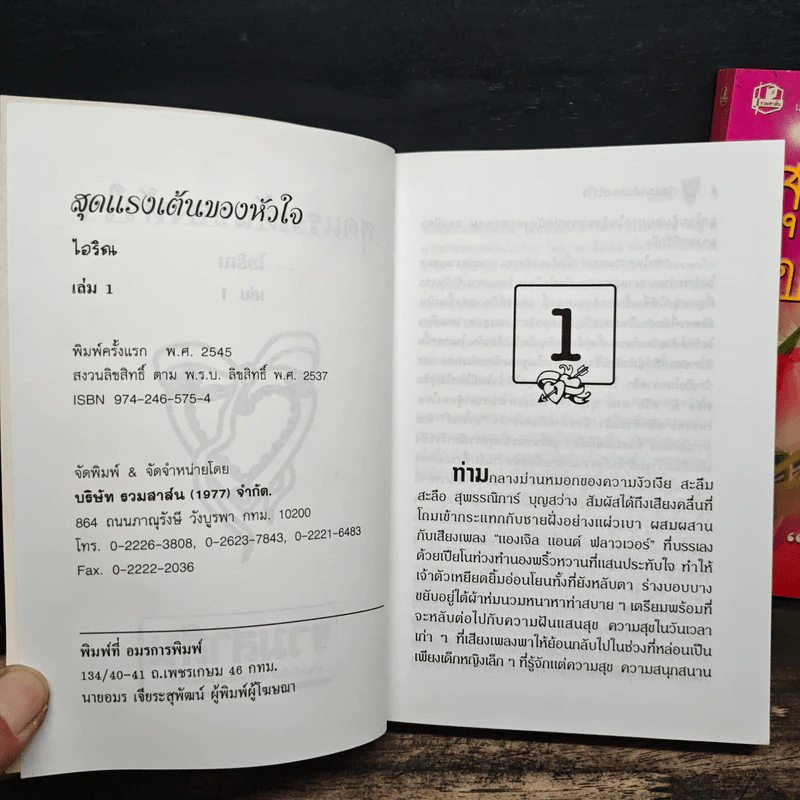 สุดแรงเต้นของหัวใจ
ไอริณ
เล่ม 1
พิมพ์ครั้งแรก พ.ศ. 2545
สงวนลิขสิทธิ์ ตาม พ.ร.บ. ลิขสิทธิ์ พ.ศ. 2537
ISBN 974-246-575-4
จัดพิมพ์ & จัดจำหน่ายโดย
บริษัท รวมสาส์น (1977) จำกัด.
864 ถนนภาณุรังษี วังบูรพา กทม. 10200
โทร. 0-2226-3808, 0-2623-7843, 0-2221-6483
Fax. 0-2222-2036
พิมพ์ที่ อมรการพิมพ์
134/40-41 ถ.เพชรเกษม 46 กทม.
นายอมร เจียระสุพัฒน์ ผู้พิมพ์ผู้โฆษณา
1
ท่ามกลางม่านหมอกของความงัวเงีย สะลึม
สะลือ สุพรรณิการ์ บุญสว่าง สัมผัสได้ถึงเสียงคลื่นที่
โถมเข้ากระแทกกับชายฝั่งอย่างแผ่วเบา ผสมผสาน
กับเสียงเพลง “แองเจิล แอนด์ ฟลาวเวอร์” ที่บรรเลง
ด้วยเปียโนท่วงทำนองพริ้วหวานที่แสนประทับใจ ทำให้
เจ้าตัวเหยียดยิ้มอ่อนโยนทั้งที่ยังหลับตา ร่างบอบบาง
ขยับอยู่ใต้ผ้าห่มนวมหนาหาท่าสบาย ๆ เตรียมพร้อมที่
จะหลับต่อไปกับความฝันแสนสุข ความสุขในวันเวลา
เก่า ๆ ที่เสียงเพลงพาให้ย้อนกลับไปในช่วงที่หล่อนเป็น
เพียงเด็กหญิงเล็ก ๆ ที่รู้จักแต่ความสุข ความสนุกสนาน